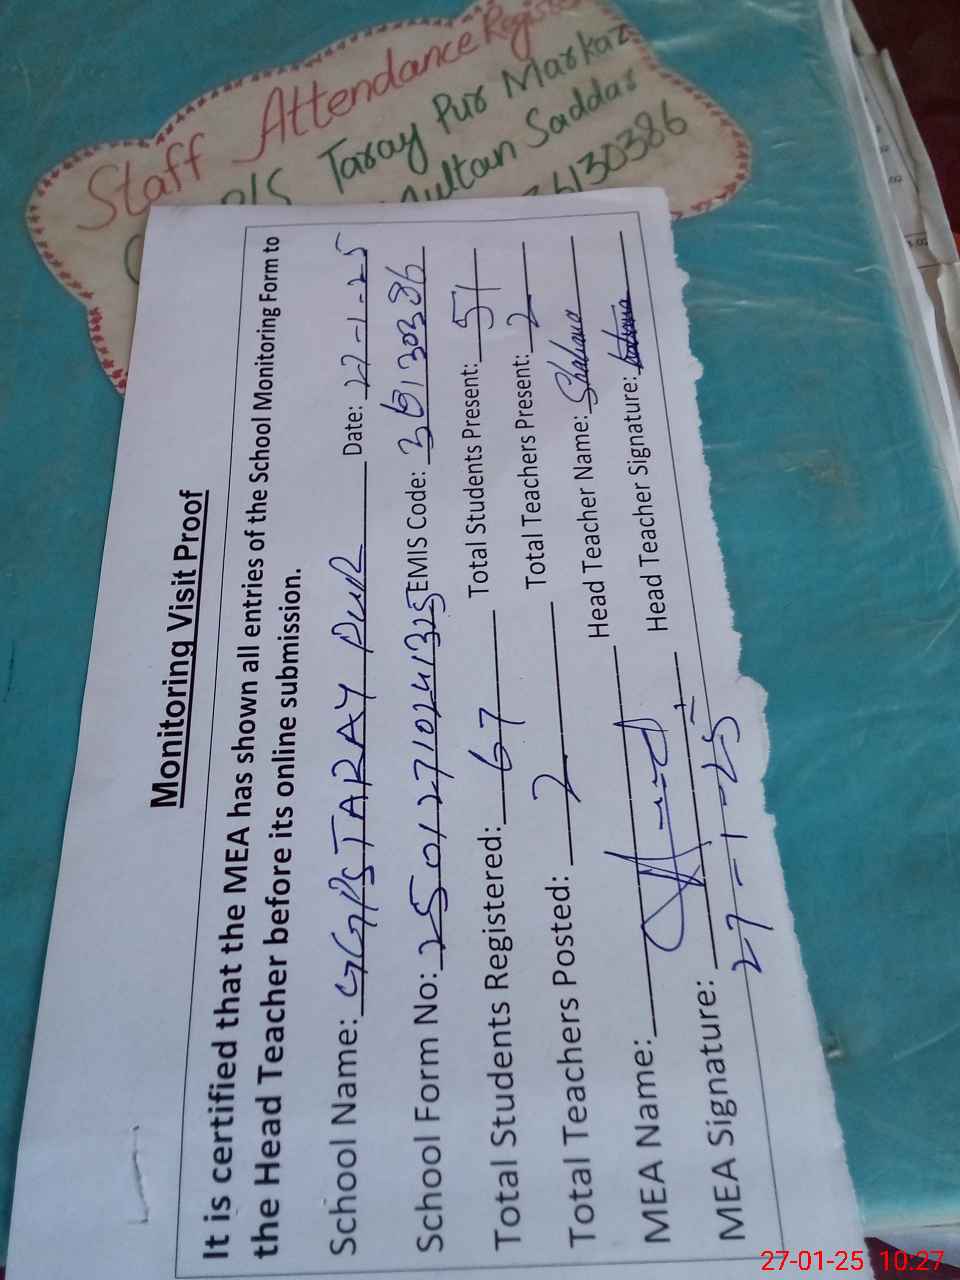 Staff Attendance Register
P/S Taray Pur Markaz
Multan Saddar
36130386
Monitoring Visit Proof
It is certified that the MEA has shown all entries of the School Monitoring Form to
the Head Teacher before its online submission.
School Name: GGPS TARAY PUR Date: 27-1-25
School Form No: 25012710241315 EMIS Code: 36130386
Total Students Registered: 67 Total Students Present: 51
Total Teachers Posted: 2 Total Teachers Present: 2
MEA Name: Head Teacher Name: Shabana
MEA Signature: Head Teacher Signature:
27-1-25
27-01-25 10:27